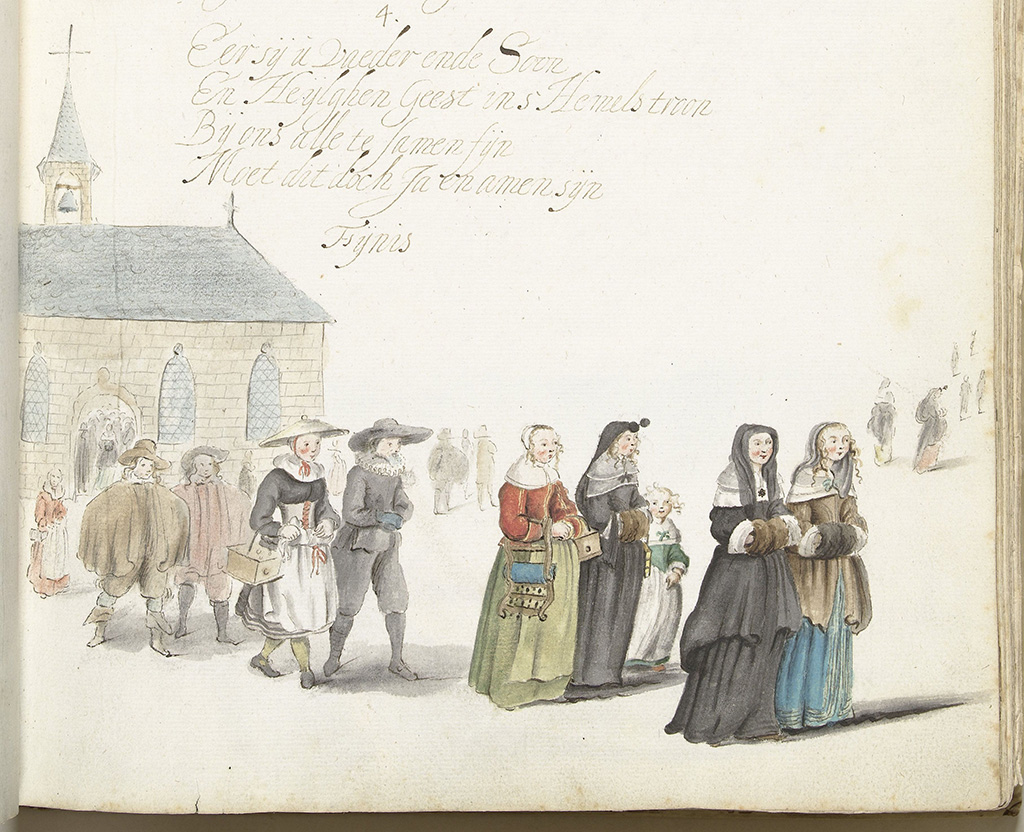 4.
Eer sÿ ú Vaeder ende Soon
En Heÿlghen Geest in s Hemels troon
Bÿ ons alle te samen sÿn
Moet dit doch Ja en amen sÿn
Fÿnis